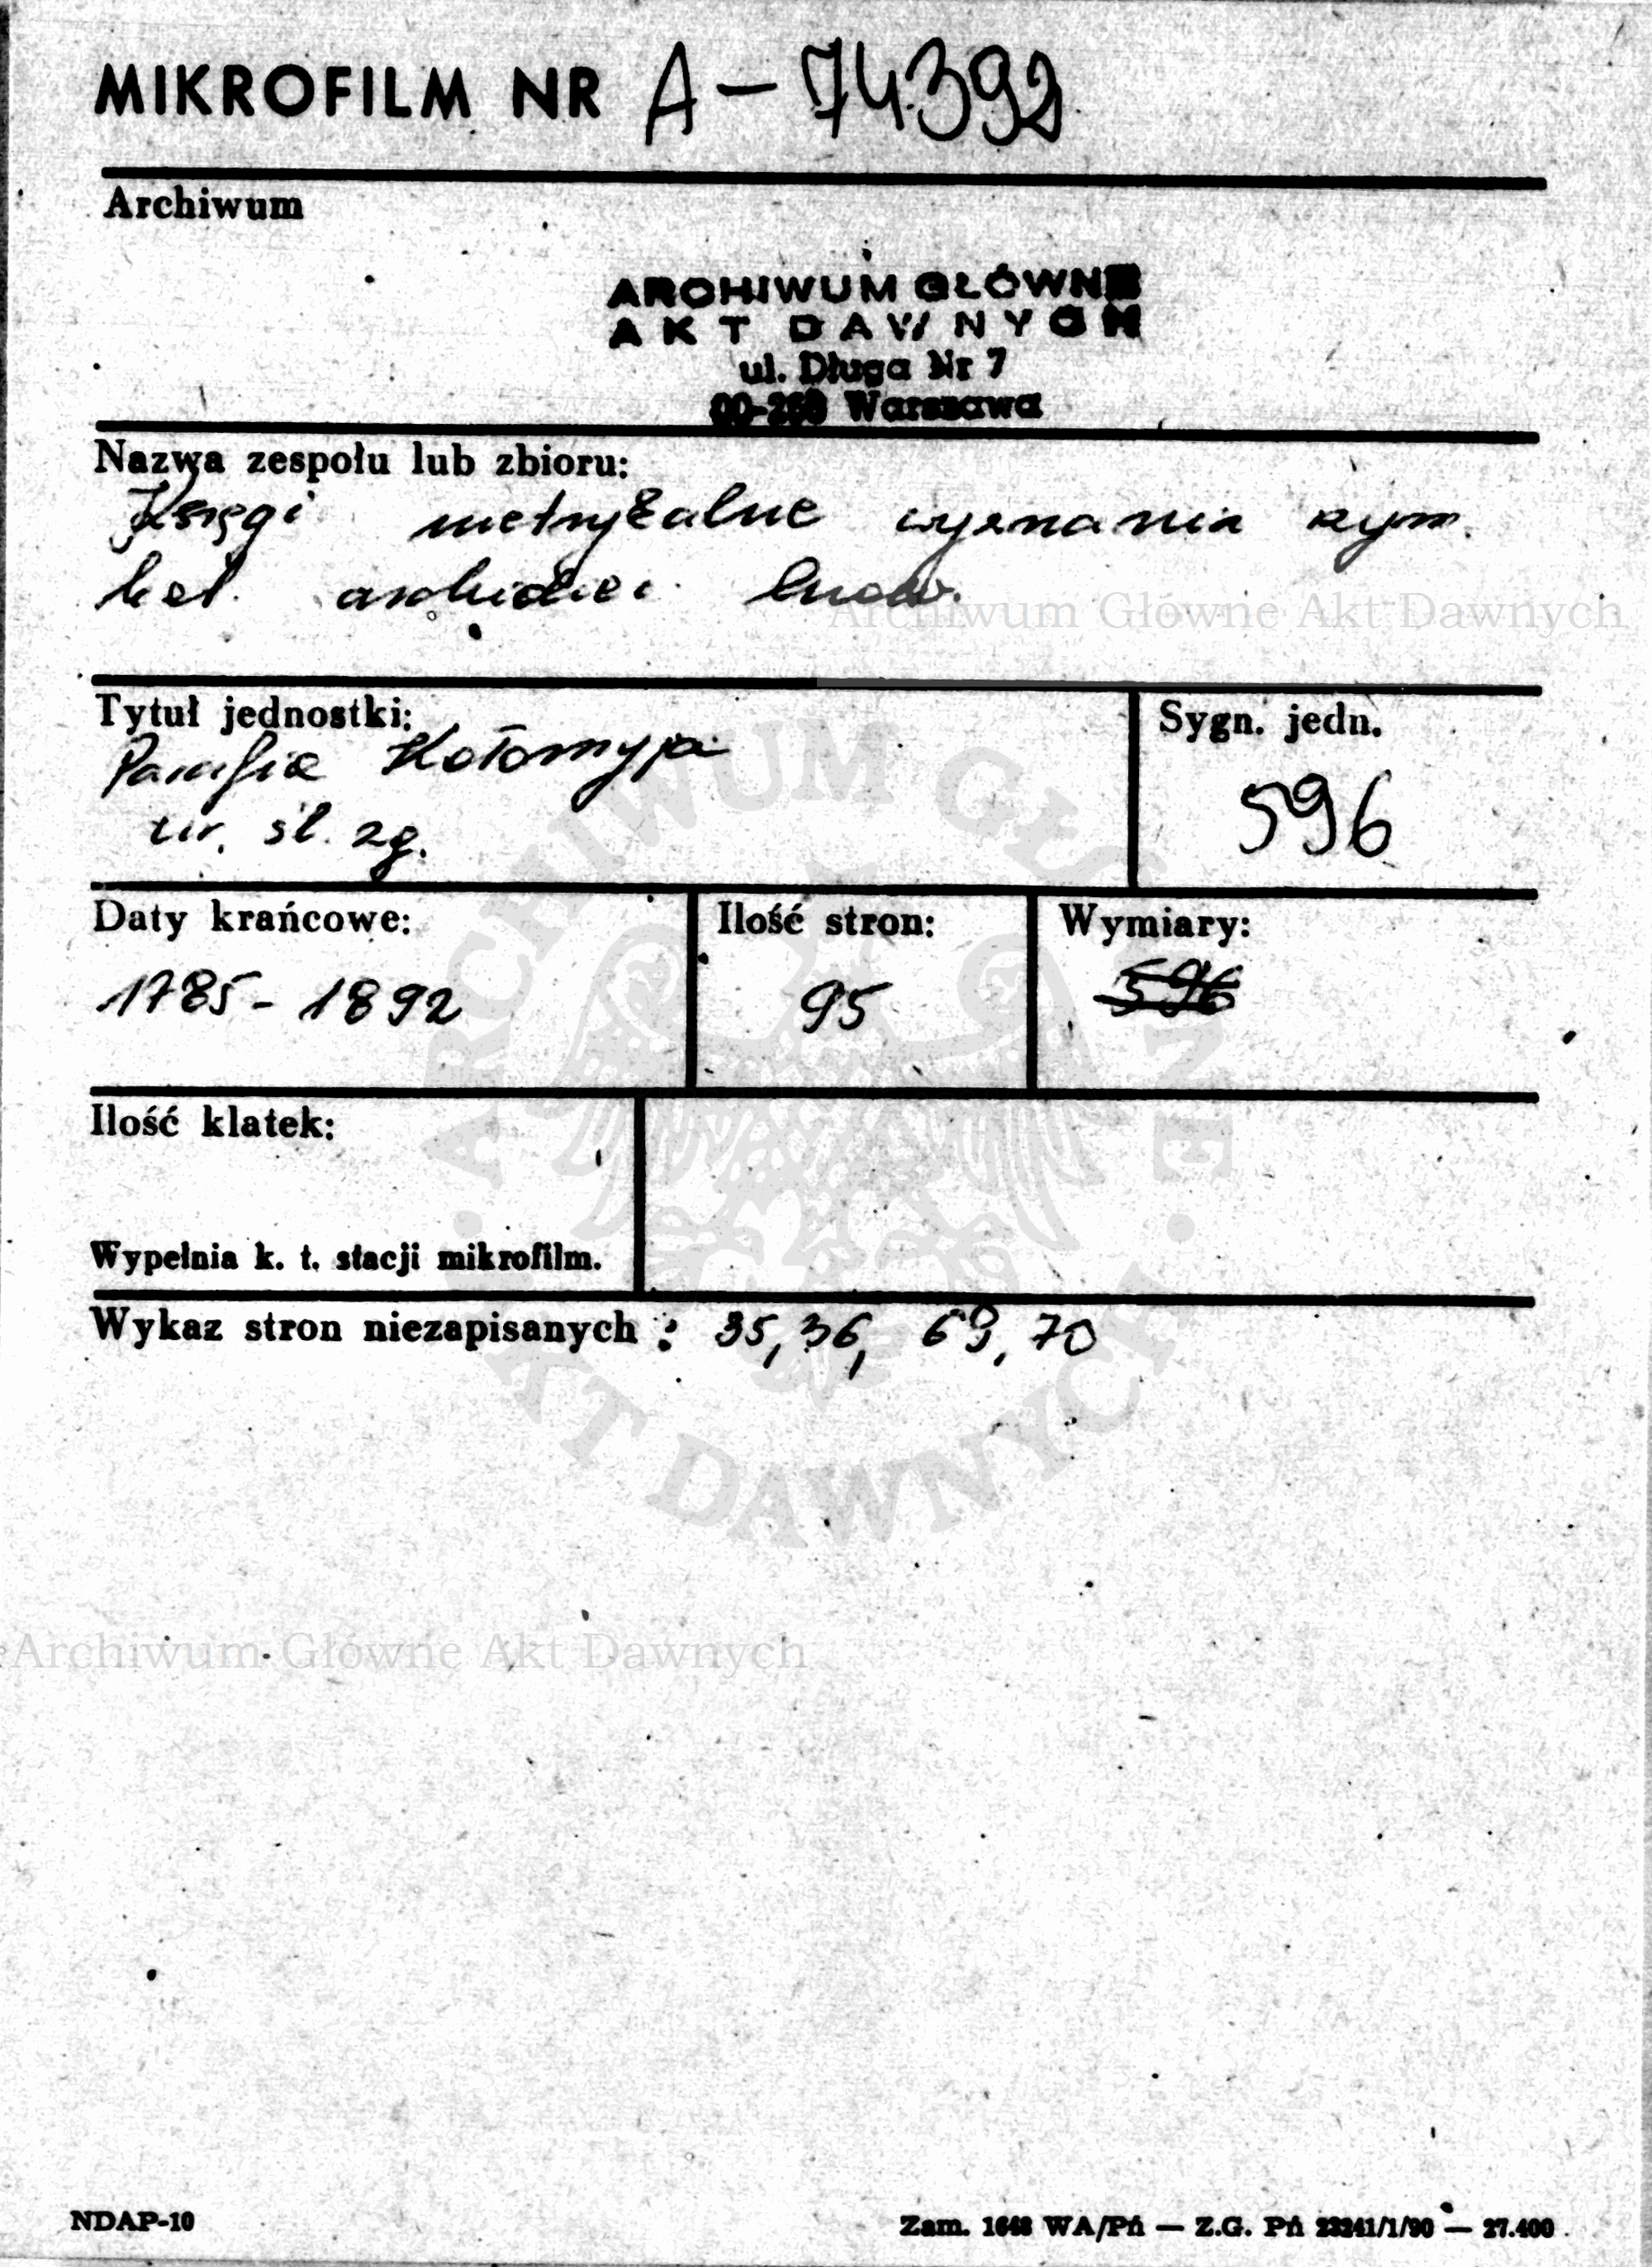 MIKROFILM NR A-74392
Archiwum
ARCHIWUM GŁÓWNE
AKT DAWNYCH
ul. Długa Nr 7
00-263 Warszawa
Nazwa zespołu lub zbioru:
Księgi metrykalne wyznania rzym.
kat. archidiec. lwow.
Archiwum Główne Akt Dawnych
Tytuł jednostki:
Parafia Kołomyja
ur. śl. zg.
Sygn. jedn.
596
Daty krańcowe:
1785-1892
Ilość stron:
95
Wymiary:
596
ARCHIWUM GŁÓWNE
AKT DAWNYCH
Ilość klatek:
Wypełnia k. t. stacji mikrofilm.
Wykaz stron niezapisanych: 35, 36, 69, 70
Archiwum Główne Akt Dawnych
NDAP-10
Zam. 1648 WA/Pń — Z.G. Pń 23241/1/90 — 27.400